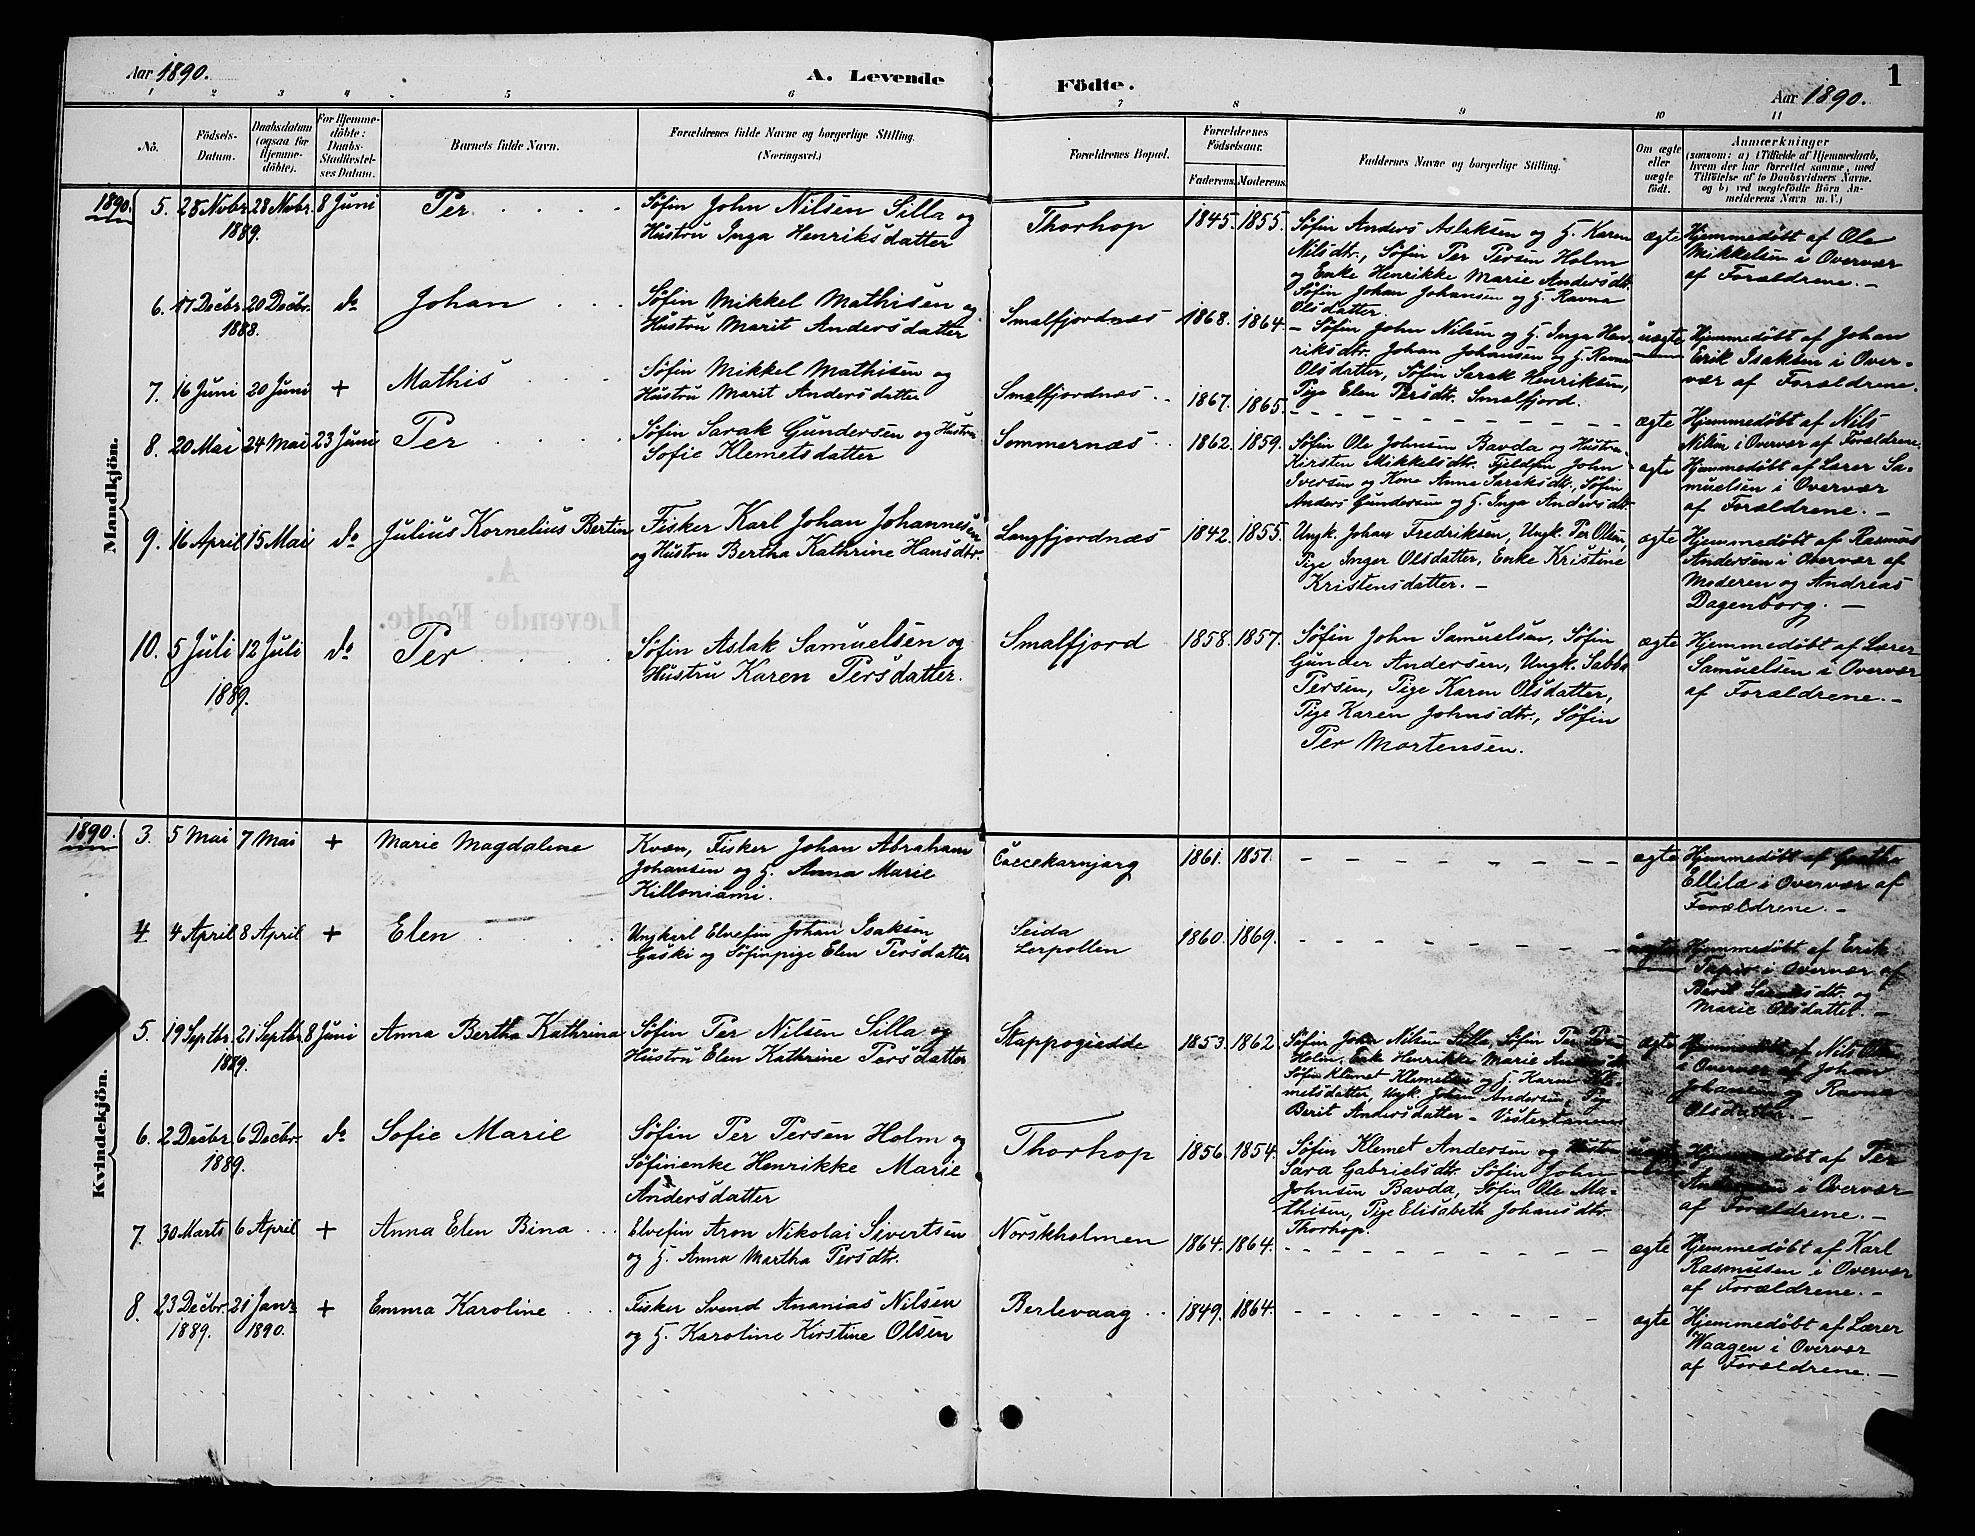 Aar 1890.
A. Levende
Födte.
1
Aar 1890.
1 2 3 4 5 6 7 8 9 10 11
No.
Födsels-
Datum.
Daabsdatum
(ogsaa för
Hjemme-
döbte).
For Hjemme-
döbte:
Daabs-
Stadfæstel-
ses Datum.
Barnets fulde Navn.
Forældrenes fulde Navne og borgerlige Stilling.
(Næringsvei.)
Forældrenes Bopæl.
Forældrenes
Födselsaar.
Faderens. Moderens.
Faddernes Navne og borgerlige Stilling.
Om ægte
eller
uægte
födt.
Anmærkninger
(saasom: a) i Tilfælde af Hjemmedaab,
hvem der har forrettet samme, med
Tilföielse af to Daabsvidners Navne,
og b) ved uægtefödte Börn An-
melderens Navn m. V.)
Mandkjön.
1890. 5. 28 Novbr. 28 Novbr. 8 Juni Per
1889.
Søfin John Nilsen Silla og
Hustru Inga Henriksdatter
Thorhop 1845. 1855.
Søfin Anders Aslaksen og H. Karen
Nilsdtr., Søfin Per Persen Holm
og Enke Henrikke Marie Andersdtr.
Søfin Johan Johansen og H. Ravna
Olsdatter.
ægte
Hjemmedøbt af Ole
Mikkelsen i Overvær
af Forældrene. —
6. 17 Decbr. 20 Decbr. do Johan
1888.
Søfin Mikkel Mathisen og
Hustru Marit Andersdatter
Smalfjordnæs 1868. 1864.
— Søfin John Nilsen og H. Inga Hen-
riksdtr. Johan Johansen og H. Ravna
Olsdatter, Søfin Sarak Henriksen,
Pige Elen Persdtr. Smalfjord.
uægte
Hjemmedøbt af Johan
Erik Isaksen i Over-
vær af Forældrene.
7. 16 Juni 20 Juni + Mathis
Søfin Mikkel Mathisen og
Hustru Marit Andersdatter
Smalfjordnæs 1867. 1865.
ægte
Hjemmedøbt af Nils
Nilsen i Overvær af Forældrene.
8. 20 Mai 24 Mai 23 Juni Per
Søfin Sarak Gundersen og Hustru
Sofie Klemetsdatter
Sommernæs 1862. 1859.
Søfin Ole Johnsen Bavda og Hustru
Kirsten Mikkelsdtr. Fjeldfin John
Iversen og Kone Anna Saraksdtr., Søfin
Anders Gundersen og H. Inga Andersdtr.
ægte
Hjemmedøbt af Lærer Sa-
muelsen i Overvær
af Forældrene. —
9. 16 April 15 Mai do Julius Kornelius Bertin
Fisker Karl Johan Johannesen
og Hustru Bertha Kathrine Hansdtr.
Langfjordnæs 1842. 1855.
Ungk. Johan Fredriksen, Ungk. Per Olsen,
Pige Inger Olsdatter, Enke Kristine
Kristensdatter. —
ægte
Hjemmedøbt af Rasmus
Andersen i Overvær af
Moderen og Andreas
Dagenborg. —
10. 5 Juli 12 Juli do Per
1889.
Søfin Aslak Samuelsen og
Hustru Karen Persdatter.
Smalfjord 1858. 1857.
Søfin John Samuelsen, Søfin
Gunder Andersen, Ungk. Sabba
Persen, Pige Karen Olsdatter,
Pige Karen Johnsdtr., Søfin
Per Mortensen.
ægte
Hjemmedøbt af Lærer
Samuelsen i Overvær
af Forældrene. —
Kvindekjön.
1890. 3. 5 Mai 7 Mai + Marie Magdalene
Kvæn, Fisker Johan Abraham
Johansen og H. Anna Marie
Killoniami.
Čaccekarnjarg 1861. 1857.
ægte
Hjemmedøbt af
Ellila i Overvær af
Forældrene. —
4 4 April 8 April + Elen
Ungkarl Elvefin Johan Isaksen
Gaski og Søfinpige Elen Persdatter
Seida
Lerpollen
1860. 1869.
uægte
Hjemmedøbt af Erik
i Overvær af
Berit og
Marie Olsdatter. —
5. 19 Septbr. 21 Septbr. 8 Juni Anna Bertha Kathrina
1889.
Søfin Per Nilsen Silla og
Hustru Elen Kathrine Persdatter
Stappogiedde 1853. 1862.
Søfin John Nilsen Silla, Søfin Per Persen
Holm, Enke Henrikke Marie Andersdtr.
Søfin Klemet Klemetsen og H. Karen Kle-
metsdatter, Ungk. Johan Andersen, Pige
Berit Andersdatter — Vestertanen
ægte
Hjemmedøbt af Nils Olsen
i Overvær af Johan
Johansen og Ravna
Olsdatter. —
6. 2 Decbr. 6 Decbr. do Sofie Marie
1889.
Søfin Per Persen Holm og
Søfinenke Henrikke Marie
Andersdatter
Thorhop 1856. 1854.
Søfin Klemet Andersen og Hustru
Sara Gabrielsdtr. Søfin John
Johnsen Bavda, Søfin Ole Ma-
thisen, Pige Elisabeth Johansdtr.
Thorhop.
uægte
Hjemmedøbt af Per
Andersen i Overvær
af Forældrene. —
7. 30 Marts 6 April + Anna Elen Bina
Elvefin Aron Nikolai Sivertsen
og H. Anna Martha Persdtr.
Norskholmen 1864. 1864.
ægte
Hjemmedøbt af Karl
Rasmusen i Overvær
af Forældrene. —
8. 23 Decbr. 21 Janr. + Emma Karoline
1889. 1890.
Fisker Svend Ananias Nilsen
og H. Karoline Kirstine Olsen
Berlevaag 1849. 1864.
ægte
Hjemmedøbt af Lærer
Waagen i Overvær
af Forældrene. —